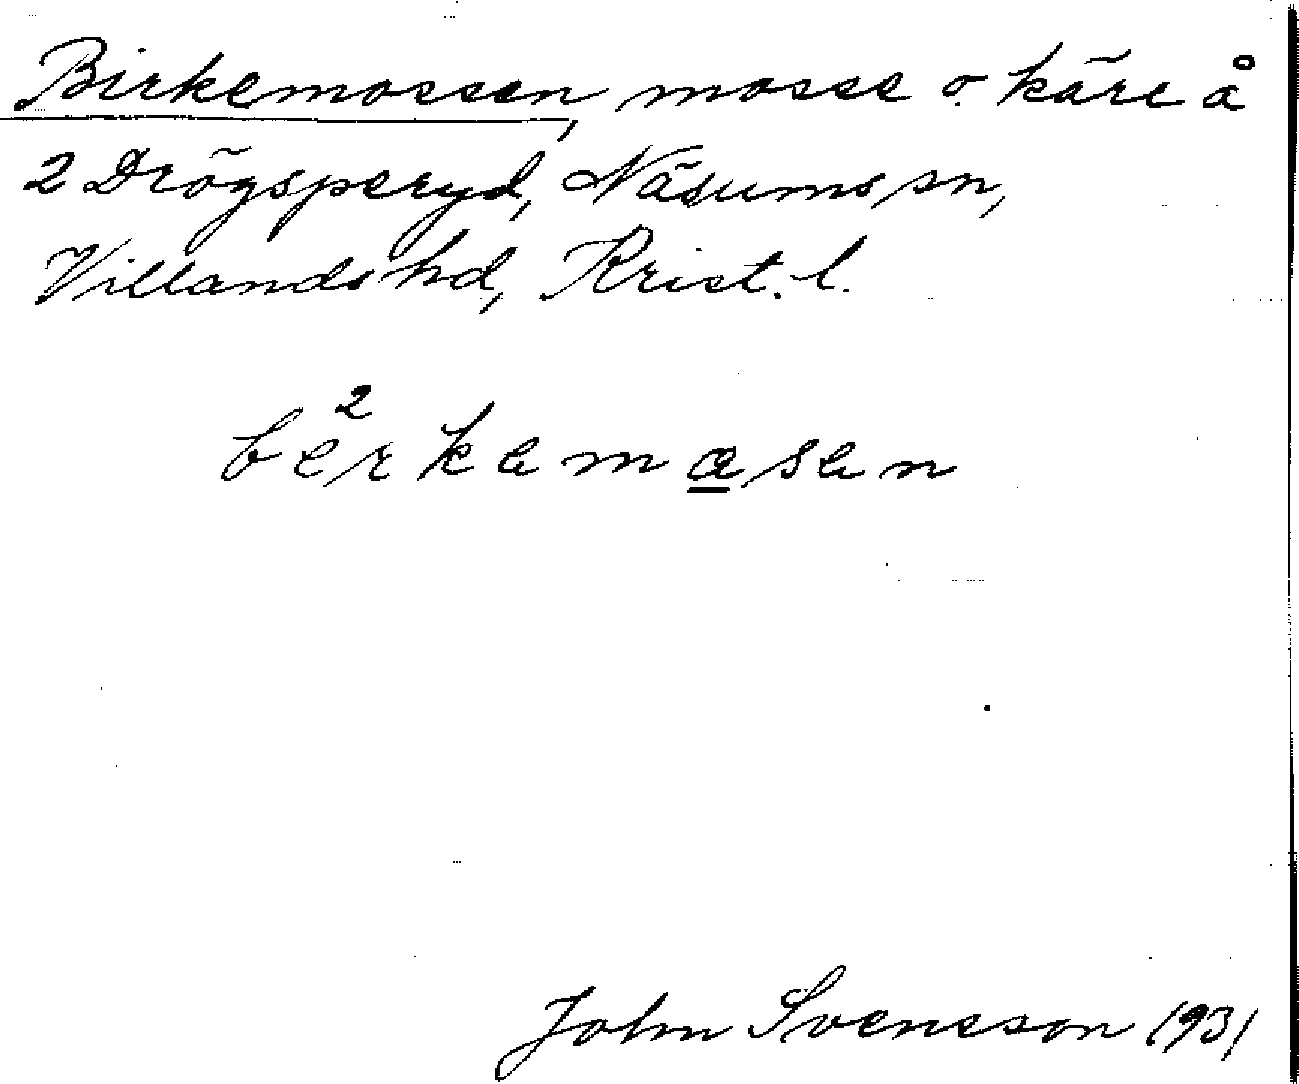 Birkemossen, mosse o. kärr å
2 Drögsperyd, Näsums sn,
Villands hd, Krist. l.
2
bèrkamosan
John Svensson 1931